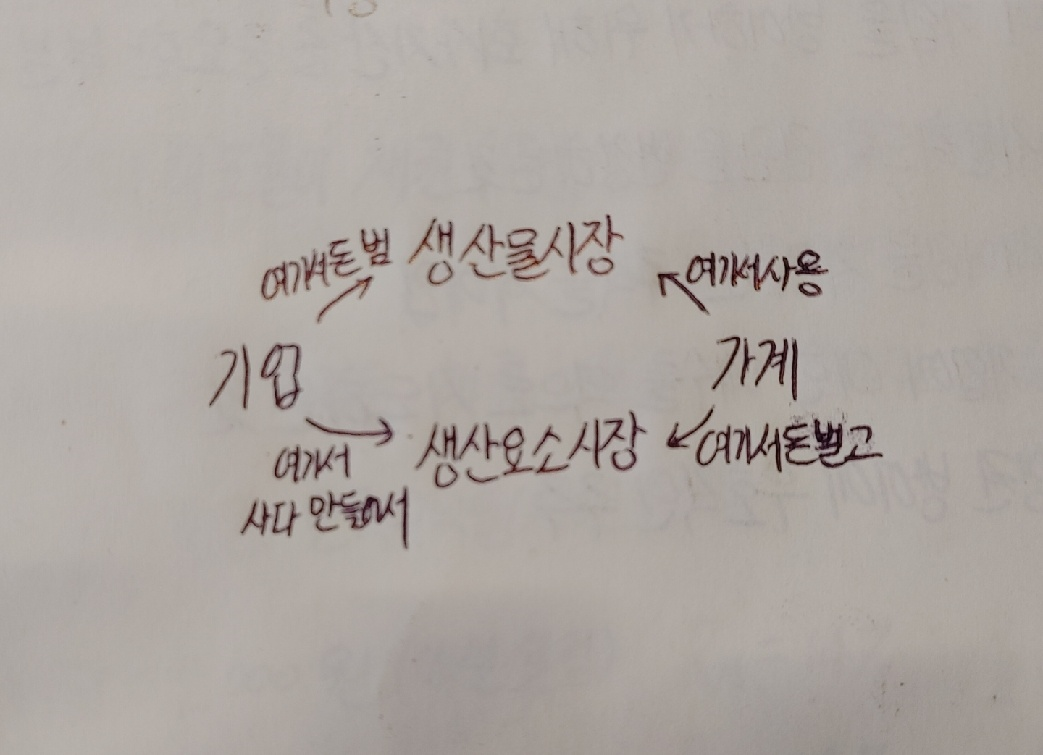 여기서돈범 생산물시장
여기서사용
기업
가계
여기서
사다 만들어서
생산요소시장
여기서돈벌고